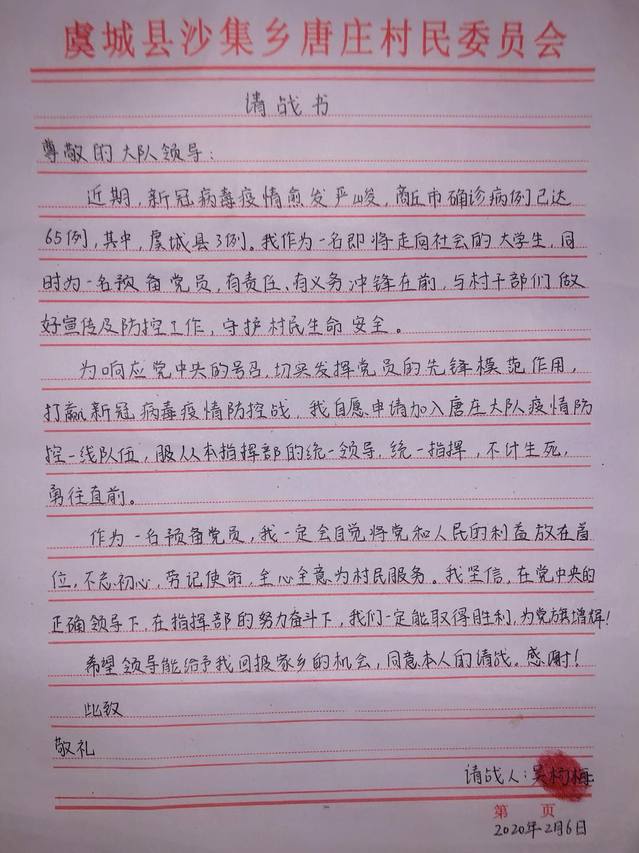 虞城县沙集乡唐庄村民委员会
请战书
尊敬的大队领导:
近期,新冠病毒疫情愈发严峻,商丘市确诊病例已达
65例,其中,虞城县3例。我作为一名即将走向社会的大学生,同
时为一名预备党员,有责任、有义务冲锋在前,与村干部们做
好宣传及防控工作,守护村民生命安全。
为响应党中央的号召,切实发挥党员的先锋模范作用,
打赢新冠病毒疫情防控战,我自愿申请加入唐庄大队疫情防
控一线队伍,服从本指挥部的统一领导,统一指挥,不计生死,
勇往直前。
作为一名预备党员,我一定会自觉将党和人民的利益放在首
位,不忘初心,牢记使命,全心全意为村民服务。我坚信,在党中央的
正确领导下,在指挥部的努力奋斗下,我们一定能取得胜利,为党旗增辉!
希望领导能给予我回报家乡的机会,同意本人的请战。感谢!
此致
敬礼
请战人:吴柯梅
第 页
2020年2月6日